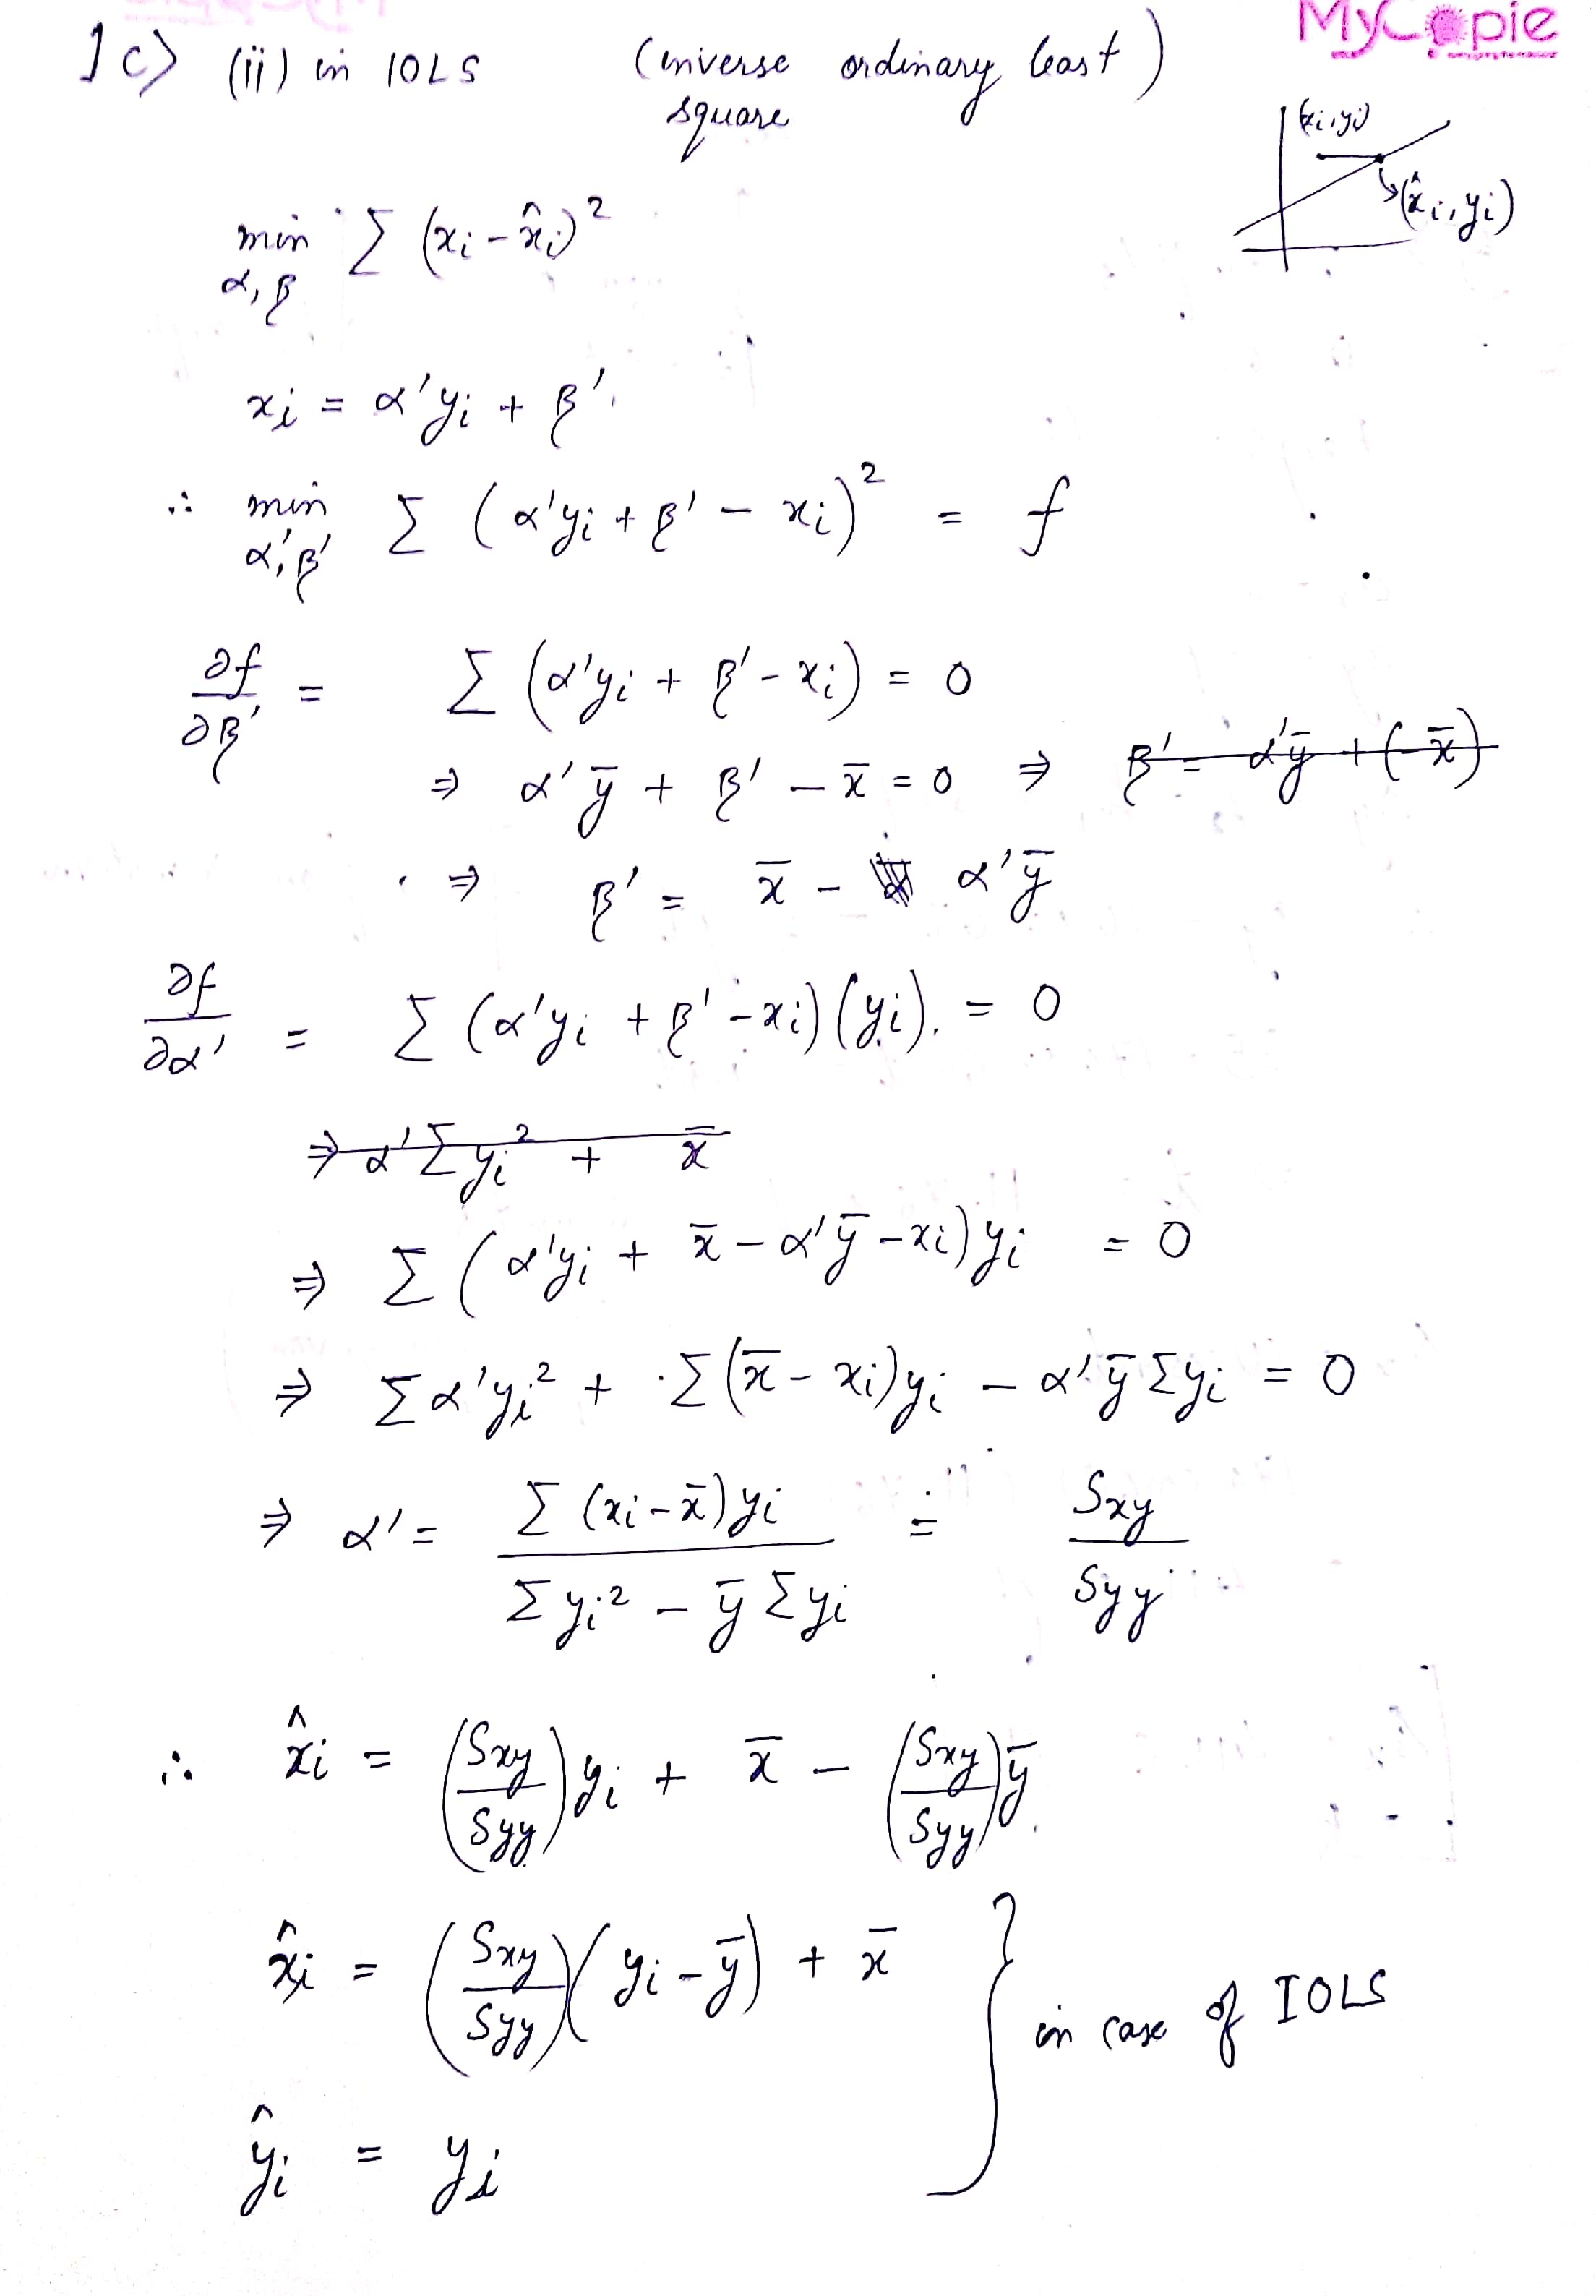 MyCopie
1c) (ii) in IOLS (inverse ordinary least square)
(xi, yi)
(x̂i, yi)
min α, β Σ (xi - x̂i)²
xi = α'yi + β'
∴ min α', β' Σ (α'yi + β' - xi)² = f
∂f/∂β' = Σ (α'yi + β' - xi) = 0
⇒ α'ȳ + β' - x̄ = 0 ⇒ β' = α'ȳ + (-x̄)
⇒ β' = x̄ - α'ȳ
∂f/∂α' = Σ (α'yi + β' - xi)(yi). = 0
⇒ α'Σyi² + x̄
⇒ Σ (α'yi + x̄ - α'ȳ - xi) yi = 0
⇒ Σα'yi² + Σ(x̄ - xi)yi - α'ȳ Σyi = 0
⇒ α' = Σ (xi - x̄) yi / Σ yi² - ȳ Σyi = Sxy / Syy
∴ x̂i = (Sxy / Syy) yi + x̄ - (Sxy / Syy) ȳ
x̂i = (Sxy / Syy)(yi - ȳ) + x̄
ŷi = yi
} in case of IOLS